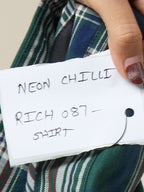 NEON CHILLI
RICH 087-
SHIRT